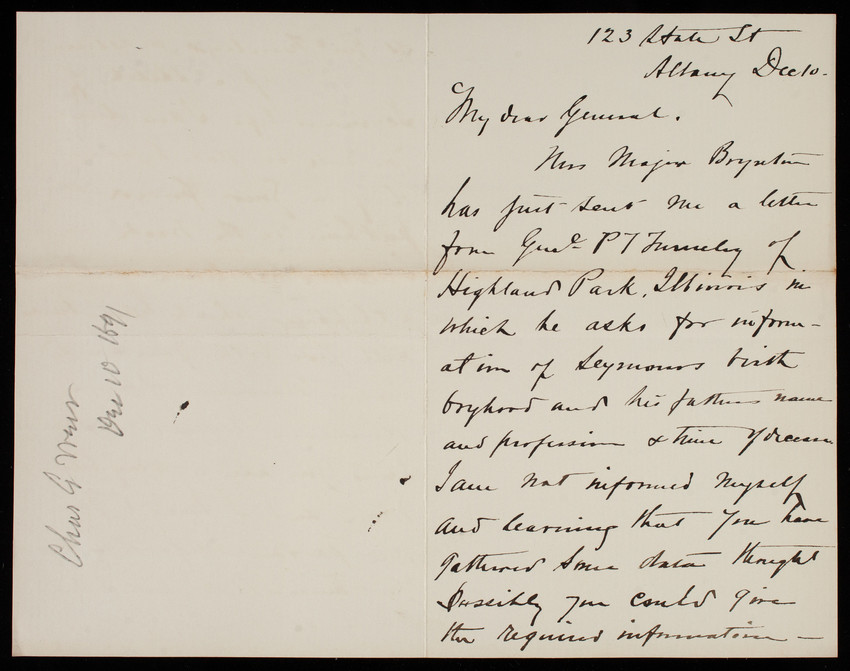 123 State St
Albany Dec 10.
My dear General.
Mrs Major Boynton
has just sent me a letter
from Genl P T Turnley of
Highland Park, Illinois in
which he asks for inform-
ation of Seymours birth
boyhood and his fathers name
and profession & time of decease
I am not informed myself
and learning that you have
gathered some data thought
possibly you could give
the required information —
Chas G
Dec 10 1891